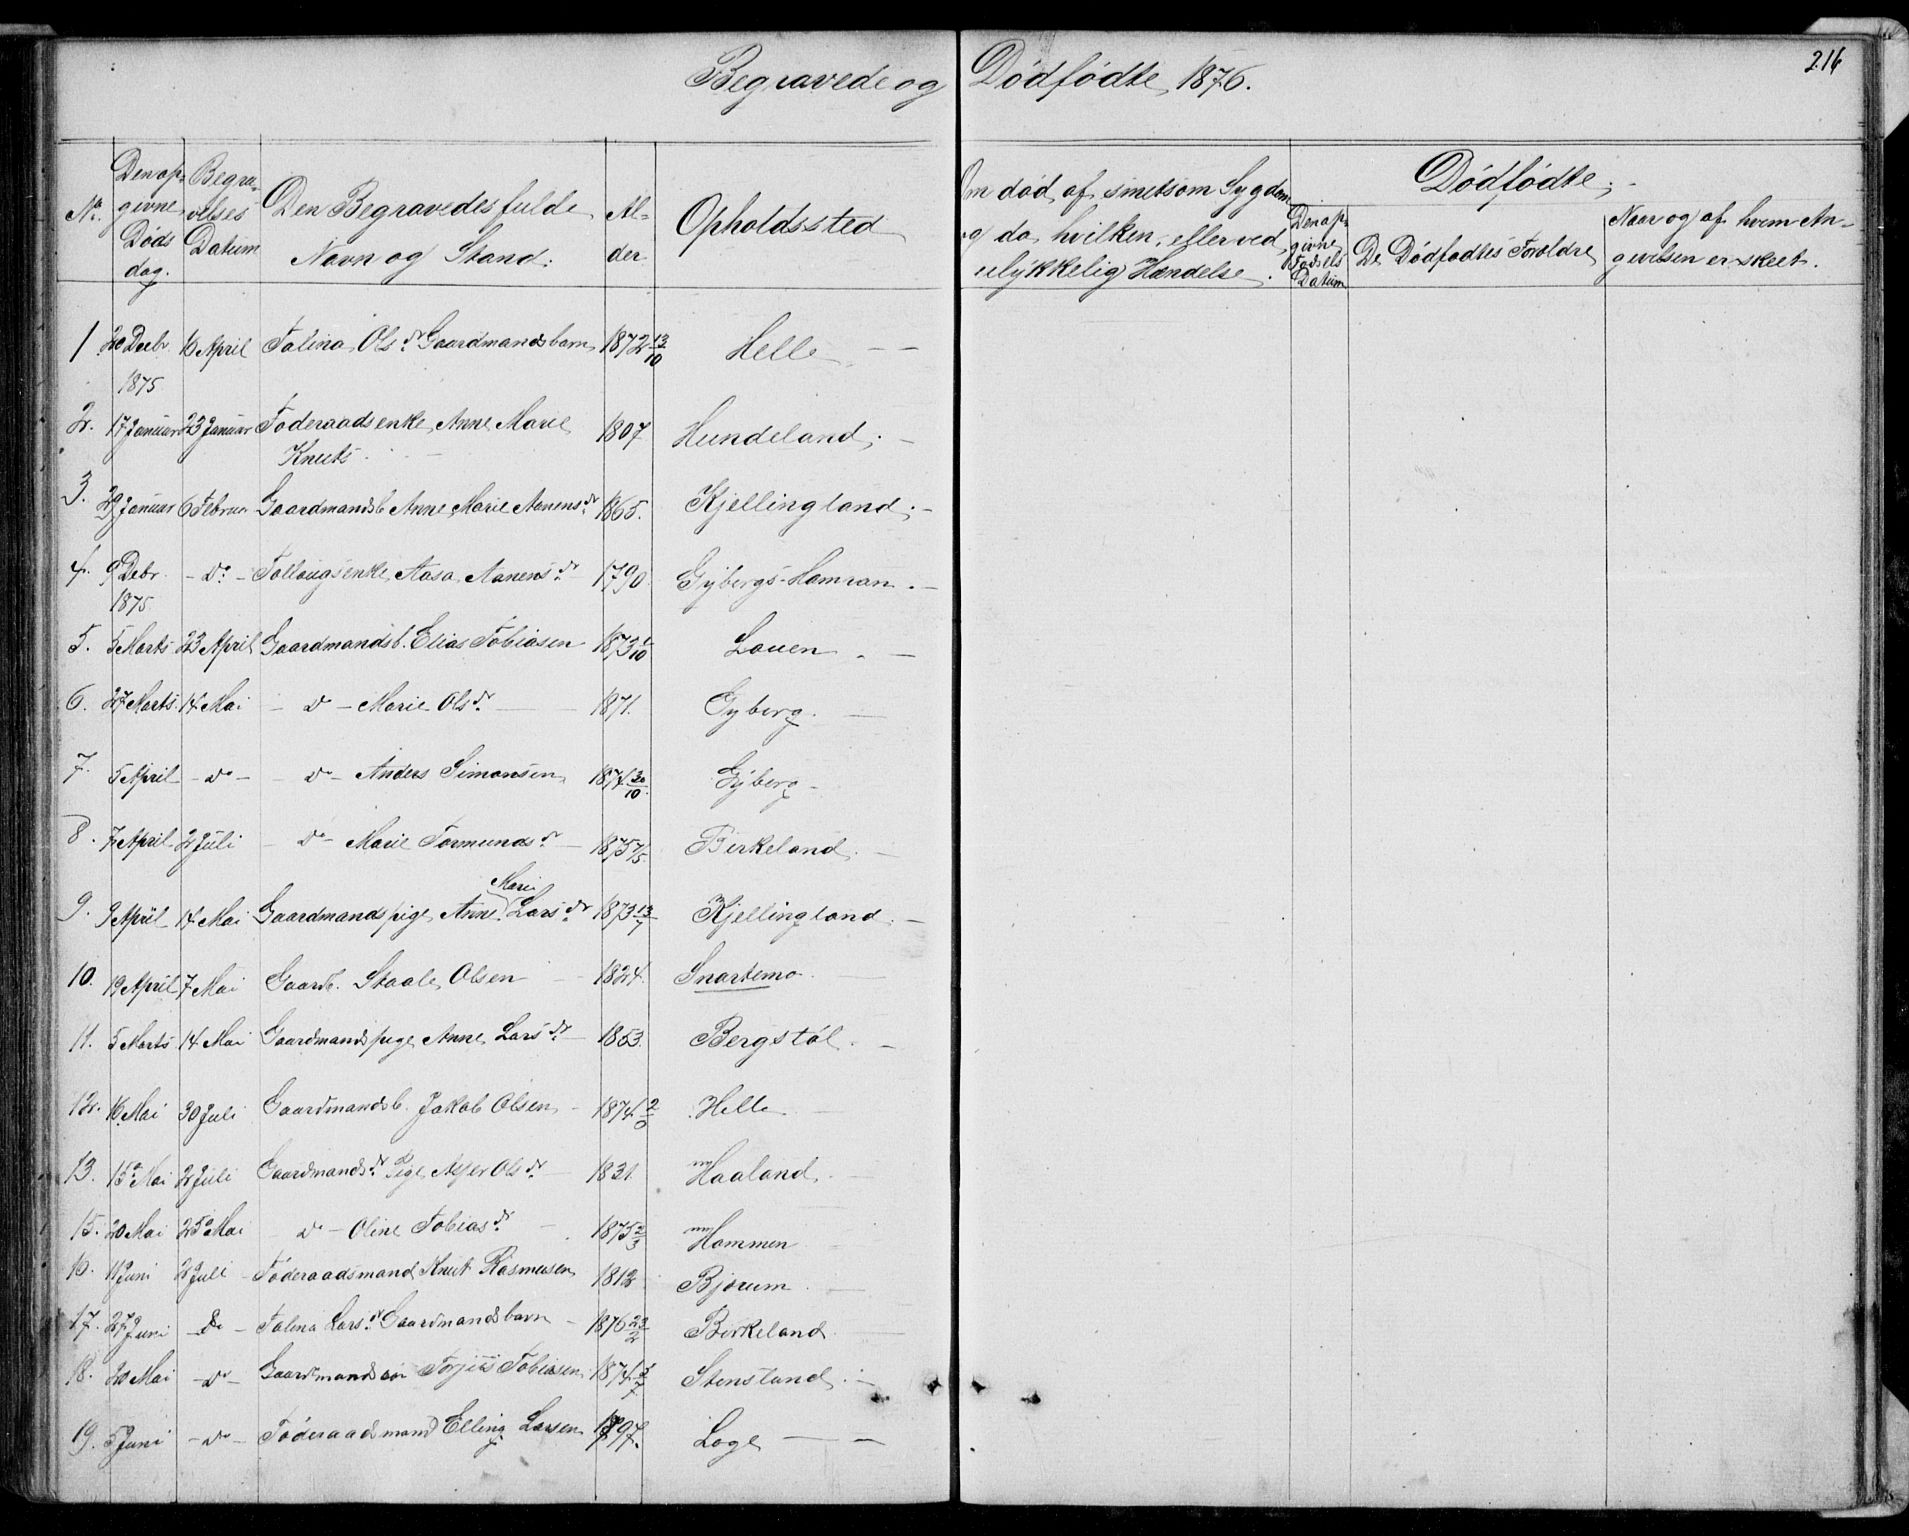 Begravede og Dødfødte 1876.
216
No.
Denop-
givne
Døds
dag.
Begra-
velses
Datum
Den Begravedes fulde
Navn og Stand.
Al-
der
Opholdssted
Om død af smitsom Sygdom
og da hvilken, eller ved
ulykkelig Hændelse.
Dødfødte.
Denop-
givne
Fødsels
Datum
De Dødfødtes Forældre
Naar og af hvem An-
givelsen er skeet.
1 20 Decbr. 16 April Talina Olsdr Gaardmandsbarn 1872 13/10 Helle
1875
2. 17 Januar 23 Januar Føderaadsenke Anne Marie 1807 Hundeland.
Knuts
3. 29 Januar 6 Februar Gaardmandsb Anne Marie Aanensdr 1865. Kjellingland.
4. 9 Debr. Do Follougsenke Aasa Aanensdr 1790 Gybergs-Hamran.
1875
5. 5 Marts 23 April Gaardmandsb. Elias Tobiasen 1873 /10 Lauen
6. 27 Marts 14 Mai Do Marie Olsdr 1871. Gyberg.
7. 5 April Do Do Anders Simonsen 1874 30/10 Gyberg
8. 7 April 2 Juli Do Marie Tormundsdr 1875 7/5 Birkeland.
Marie
9. 9 April 14 Mai Gaardmandspige Anne Larsdr 1873 13/7 Kjellingland.
10. 19 April 7 Mai Gaardb. Staale Olsen 1824. Snartemo
11. 5 Marts 14 Mai Gaardmandspige Anne Larsdr 1853. Bergstøl.
12. 16 Mai 30 Juli Gaardmandsb. Jakob Olsen 1874 2/ Helle
13. 15 Mai 2 Juli Gaardmandsdr Pige Olsdr 1831. Haaland.
15. 20 Mai 25 Mai Do Oline Tobiasdr 1875 2/3 Hommen
16. 11 Juni 2 Juli Føderaadsmand Knut Rasmusen 1812 Bjorum
17. 27 Juni Do Talina Larsdr Gaardmandsbarn 1876 23/2 Birkeland
18. 20 Mai Do Gaardmandssøn Torjuis Tobiasen 1874 /7 Stensland.
19. 5 Juni Do Føderaadsmand Elling Larsen 1797. Loge